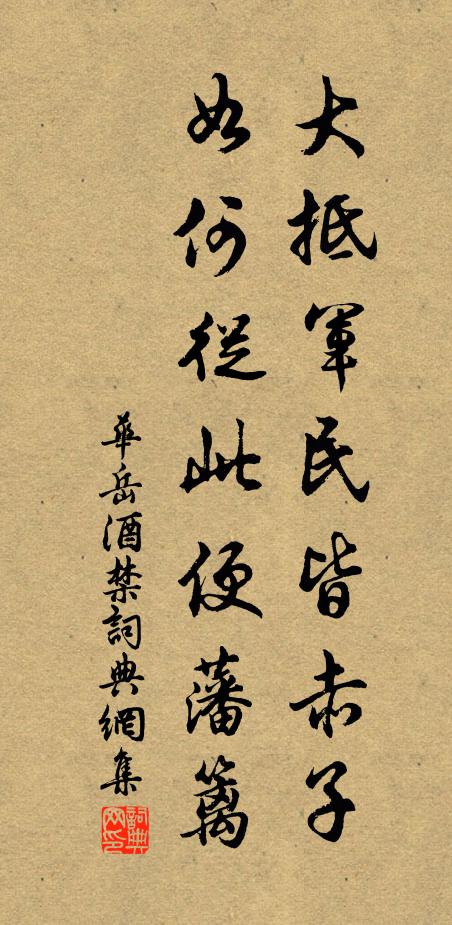 大抵軍民皆赤子
如何從此便藩籬
華岳酒禁詞典網集
詞典網印